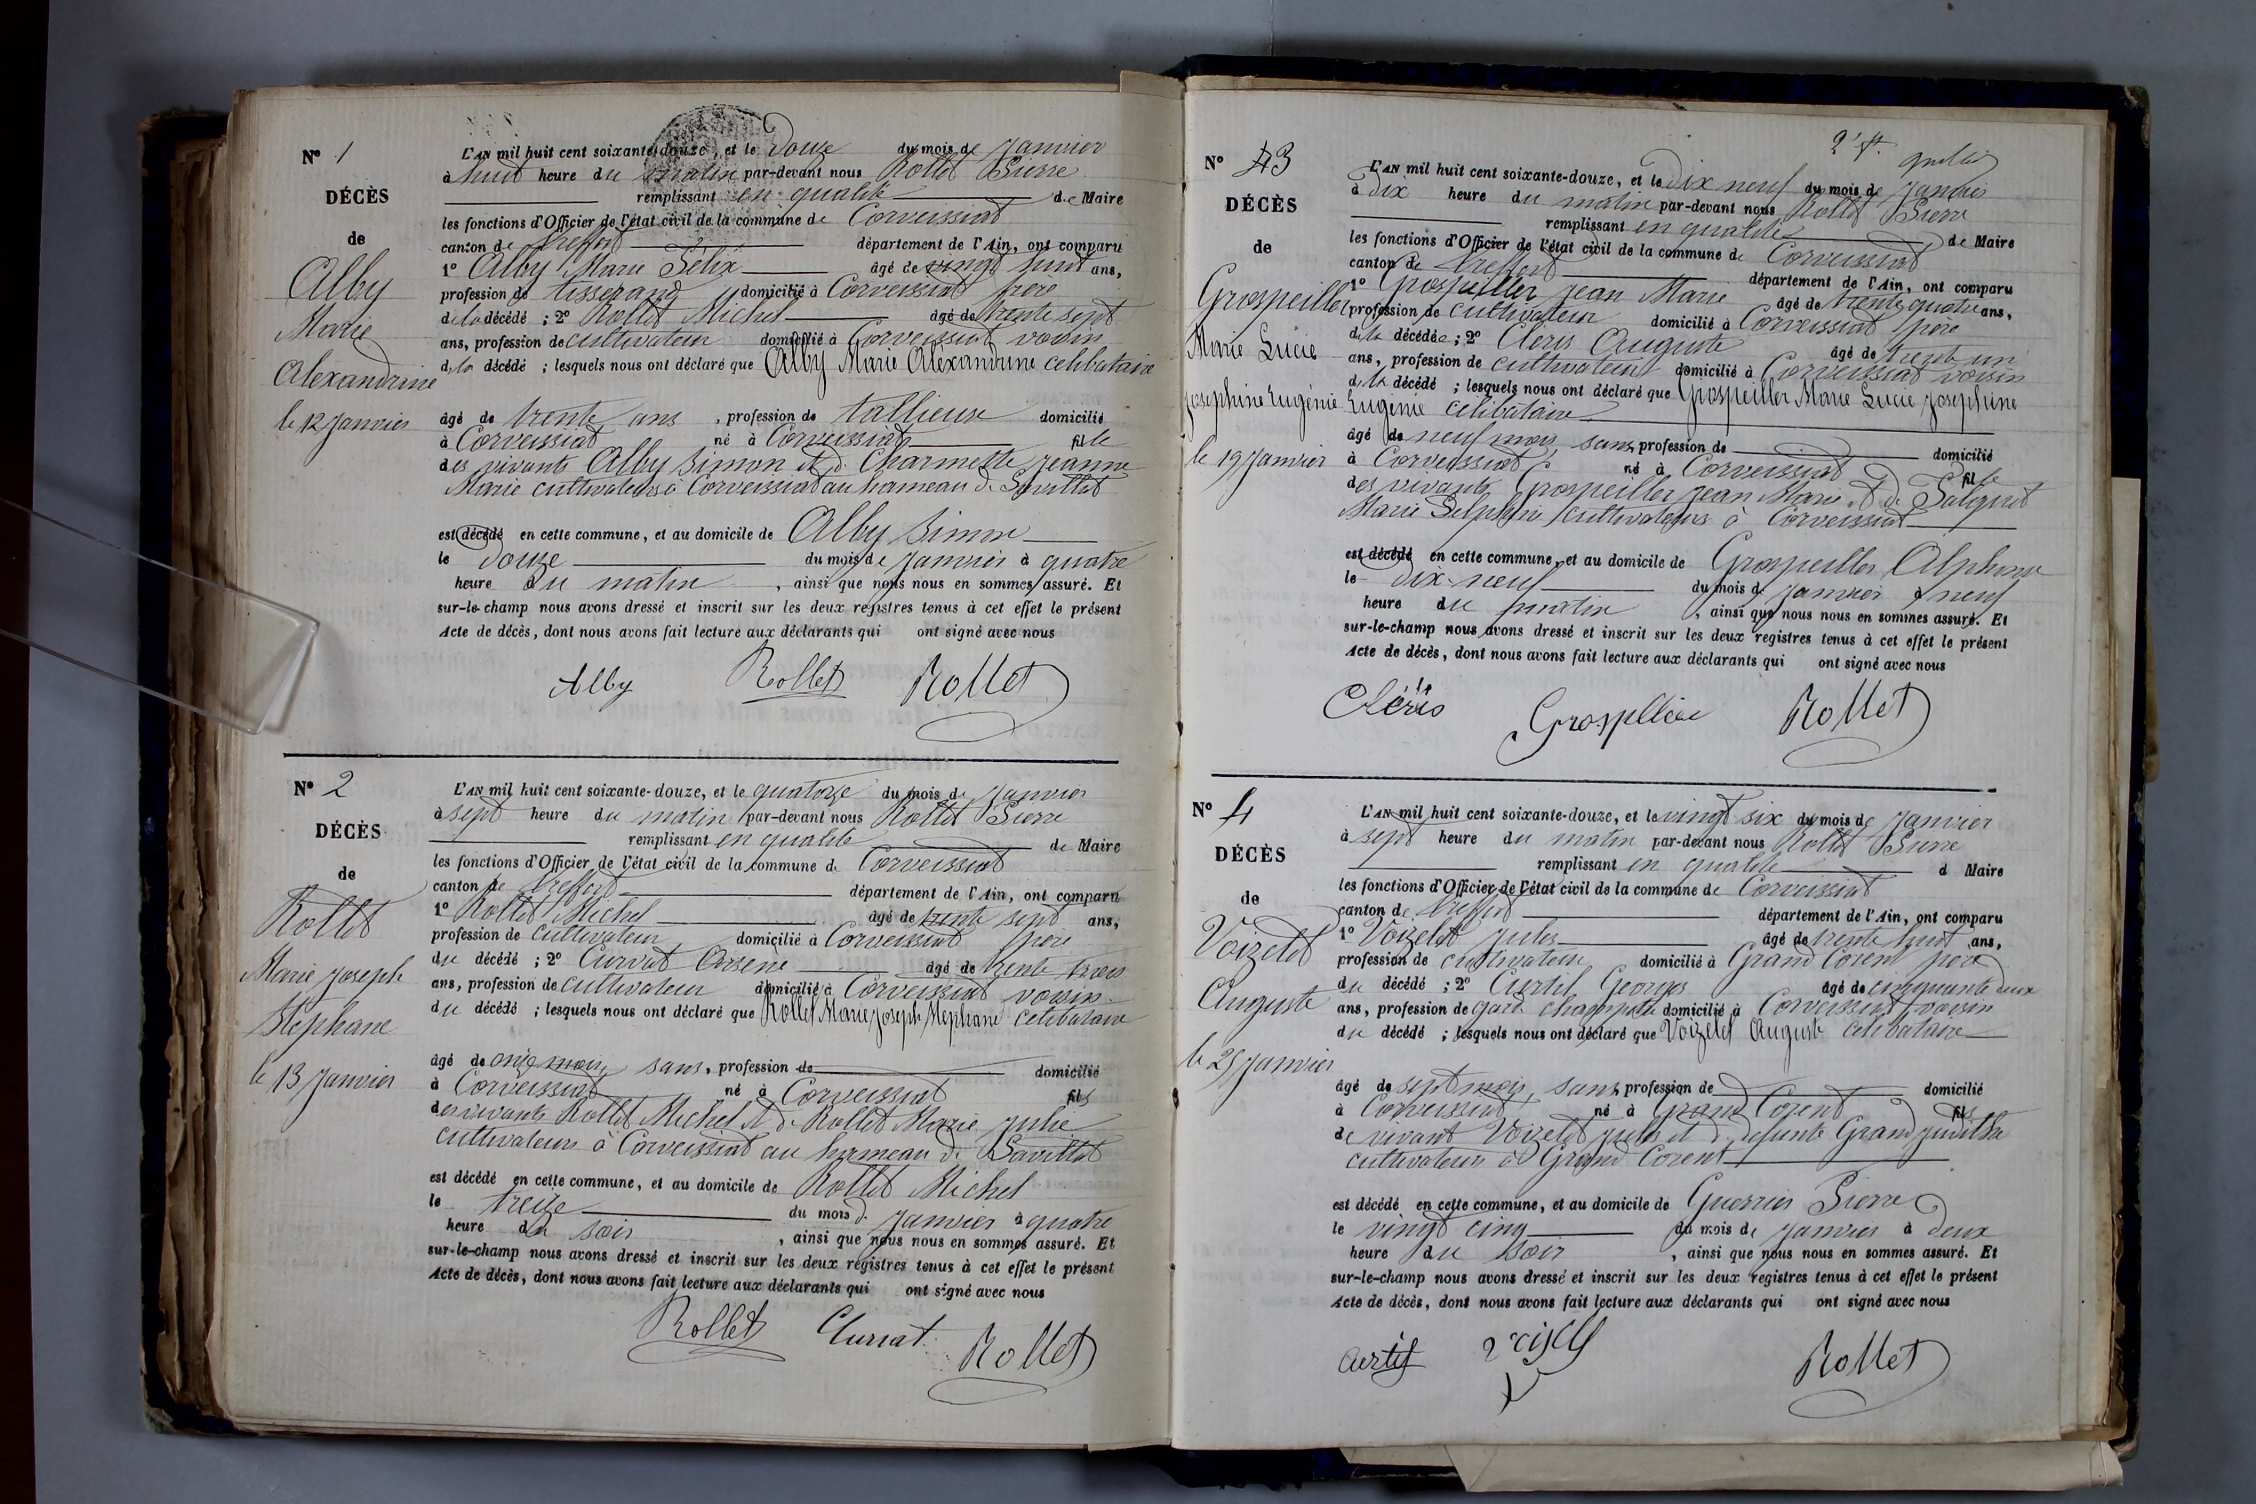 N° 1
DÉCÈS
de
Alby
Marie
Alexandrine
le 12 Janvier
L'AN mil huit cent soixante-douze, et le Douze du mois de Janvier
à huit heure du matin par-devant nous Rollet Pierre
remplissant en qualité de Maire
les fonctions d'Officier de l'état civil de la commune de Corveissiat
canton de Treffort département de l'Ain, ont comparu
1° Alby Marie Félix âgé de vingt huit ans,
profession de tisserand domicilié à Corveissiat frère
de la décédé ; 2° Rollet Michel âgé de trente sept
ans, profession de cultivateur domicilié à Corveissiat voisin
de la décédé ; lesquels nous ont déclaré que Alby Marie Alexandrine célibataire
âgé de trente ans , profession de tallieuse domicilié
à Corveissiat né à Corveissiat fille
des vivants Alby Simon et de Charmette Jeanne
Marie cultivateurs à Corveissiat au hameau de Savillat
est décédé en cette commune, et au domicile de Alby Simon
le douze du mois de Janvier à quatre
heure du matin , ainsi que nous nous en sommes assuré. Et
sur-le-champ nous avons dressé et inscrit sur les deux registres tenus à cet effet le présent
Acte de décès, dont nous avons fait lecture aux déclarants qui ont signé avec nous
Alby Rollet Rollet
N° 2
DÉCÈS
de
Rollet
Marie Joseph
Stéphane
le 13 Janvier
L'AN mil huit cent soixante-douze, et le quatorze du mois de Janvier
à sept heure du matin par-devant nous Rollet Pierre
remplissant en qualité de Maire
les fonctions d'Officier de l'état civil de la commune de Corveissiat
canton de Treffort département de l'Ain, ont comparu
1° Rollet Michel âgé de trente sept ans,
profession de cultivateur domicilié à Corveissiat père
du décédé ; 2° Curvat Arsène âgé de trente trois
ans, profession de cultivateur domicilié à Corveissiat voisin
du décédé ; lesquels nous ont déclaré que Rollet Marie Joseph Stéphane célibataire
âgé de onze mois, sans, profession de domicilié
à Corveissiat né à Corveissiat fils
des vivants Rollet Michel et de Rollet Marie Julie
cultivateurs à Corveissiat au hameau de Savillat
est décédé en cette commune, et au domicile de Rollet Michel
le treize du mois de Janvier à quatre
heure du soir , ainsi que nous nous en sommes assuré. Et
sur-le-champ nous avons dressé et inscrit sur les deux registres tenus à cet effet le présent
Acte de décès, dont nous avons fait lecture aux déclarants qui ont signé avec nous
Rollet Curvat Rollet
N° 3
DÉCÈS
de
Grospeiller
Marie Lucie
Josephine Eugénie
le 19 Janvier
L'AN mil huit cent soixante-douze, et le dix neuf du mois de Janvier
à dix heure du matin par-devant nous Rollet Pierre
remplissant en qualité de Maire
les fonctions d'Officier de l'état civil de la commune de Corveissiat
canton de Treffort département de l'Ain, ont comparu
1° Grospeiller Jean Marie âgé de trente quatre ans,
profession de cultivateur domicilié à Corveissiat père
de la décédée ; 2° Cléris Auguste âgé de trente un
ans, profession de cultivateur domicilié à Corveissiat voisin
de la décédé ; lesquels nous ont déclaré que Grospeiller Marie Lucie Josephine
Eugénie célibataire
âgé de neuf mois, sans, profession de domicilié
à Corveissiat né à Corveissiat fille
des vivants Grospeiller Jean Marie et de
Marie Delphine cultivateurs à Corveissiat
est décédé en cette commune, et au domicile de Grospeiller Alphonse
le dix-neuf du mois de Janvier à neuf
heure du matin , ainsi que nous nous en sommes assuré. Et
sur-le-champ nous avons dressé et inscrit sur les deux registres tenus à cet effet le présent
Acte de décès, dont nous avons fait lecture aux déclarants qui ont signé avec nous
Cléris Grospellier Rollet
N° 4
DÉCÈS
de
Voizelet
Auguste
le 25 Janvier
L'AN mil huit cent soixante-douze, et le vingt six du mois de Janvier
à sept heure du matin par-devant nous Rollet Pierre
remplissant en qualité d Maire
les fonctions d'Officier de l'état civil de la commune de Corveissiat
canton de Treffort département de l'Ain, ont comparu
1° Voizelet Jules âgé de trente huit ans,
profession de cultivateur domicilié à Grand Corent père
du décédé ; 2° Curtil Georges âgé de cinquante deux
ans, profession de garde champêtre domicilié à Corveissiat voisin
du décédé ; lesquels nous ont déclaré que Voizelet Auguste célibataire
âgé de sept mois, sans, profession de domicilié
à Corveissiat né à Grand Corent fils
de vivant Voizelet Jules et de défunte Grand Juditha
cultivateurs à Grand Corent
est décédé en cette commune, et au domicile de Guerrier Pierre
le vingt cinq du mois de Janvier à deux
heure du soir , ainsi que nous nous en sommes assuré. Et
sur-le-champ nous avons dressé et inscrit sur les deux registres tenus à cet effet le présent
Acte de décès, dont nous avons fait lecture aux déclarants qui ont signé avec nous
Curtil Rollet